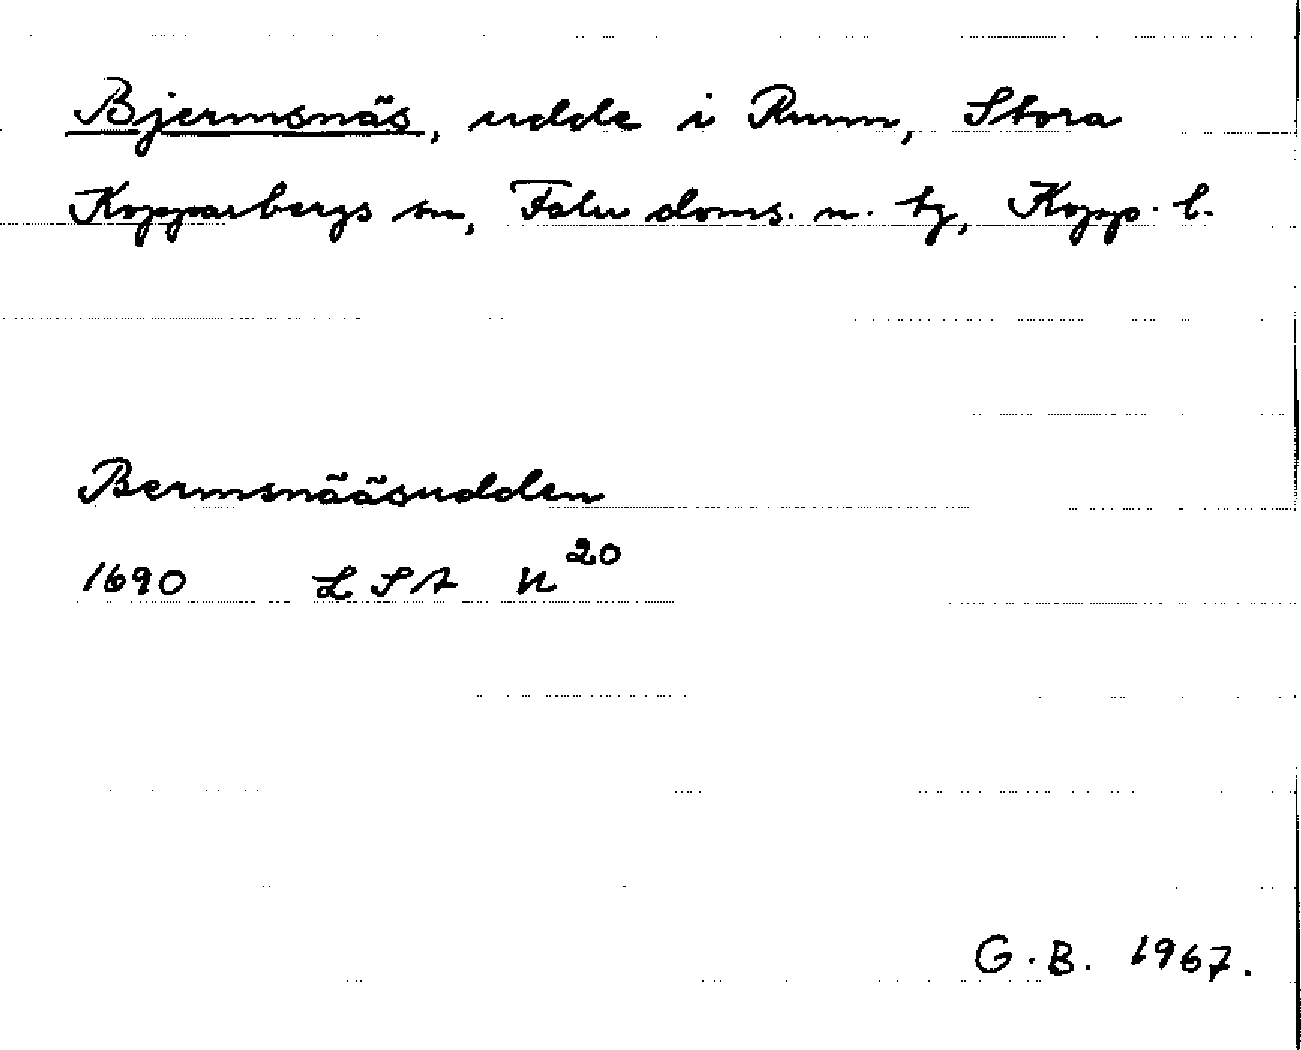 Bjermsnäs, udde i Runn, Stora
Kopparbergs sn, Falu doms. n. tg, Kopp. l.
Bermsnääsudden
1690 LSA U 20
G.B. 1967.